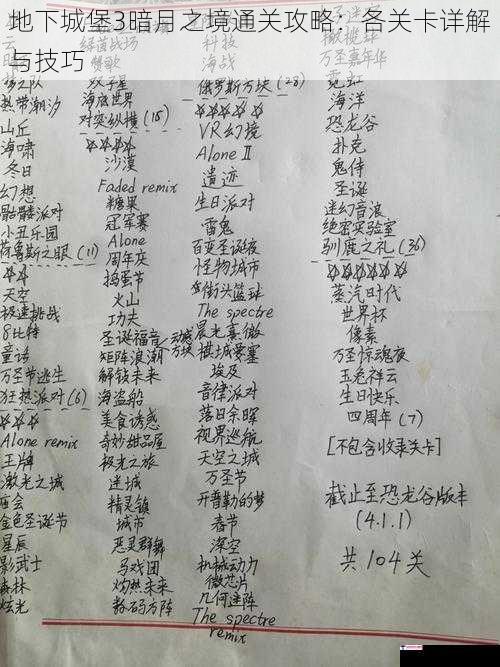 地下城堡3暗月之境通关攻略：各关卡详解
与技巧
梦之队
热带潮汐
山丘
海啸
冬日
幻想
骷髅派对
小丑乐园
荷鲁斯之眼(11)
☆☆
天空
极速挑战
8比特
童话
万圣节逃生
狂热派对(6)
☆☆☆
Alone remix
王牌
激光之城
庙会
金色圣诞节
星辰
影武士
森林
炫光
绿茵战场
餐歌
双子星
海底世界
对突纵横(18)
☆☆☆☆
沙漠
Faded remix
糖果
冠军赛
Alone
周年庆
捣蛋节
火山
功夫
圣诞福音
矩阵浪潮
解锁未来
海盗船
美食诱惑
奇妙甜品屋
极光之旅
迷城
精灵镇
城市
恶灵群舞
马戏团
灼热未来
数码方阵
科技
海战
俄罗斯方块(28)
☆☆☆☆☆
VR幻境
Alone Ⅱ
遗迹
生日派对
雷鬼
百变圣诞夜
怪物城市
街头篮球
The spectre
晨光熹微
棋城要塞
埃及
音律派对
落日余晖
视界巡航
天空之城
万圣节
开普勒的梦
春节
深空
机械动力
微芯片
几何迷阵
The spectre
remix
万圣嘉年华
霓虹
海洋
恐龙谷
扑克
鬼侍
圣诞
迷幻音浪
绝密实验室
驯鹿之礼(36)
☆☆☆☆☆☆
蒸汽时代
世界杯
像素
万圣惊魂夜
玉兔祥云
生日快乐
四周年(7)
[不包含收录关卡]
截止至恐龙谷版本
(4.1.1)
共104关